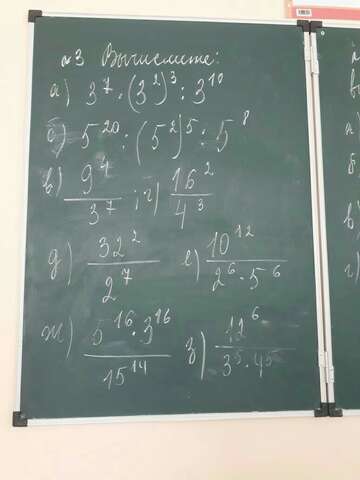 №3 Вычислите:
а) 3⁷ · (3²)³ : 3¹⁰
б) 5²⁰ : (5²)⁵ : 5⁸
в) 9⁴/3⁷ ; г) 16²/4³
д) 32²/2⁷ е) 10¹²/2⁶ · 5⁶
ж) 5¹⁶ · 3¹⁶/15¹⁴ з) 12⁶/3⁵ · 4⁵